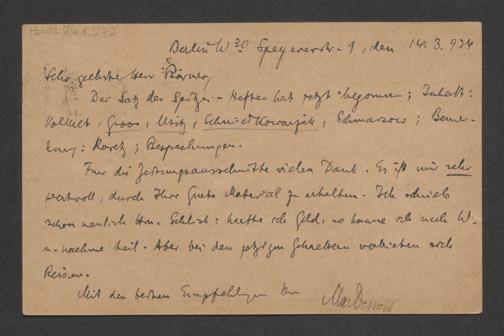 Berlin W 30 Speyererstr. 9, den 14.3.924
Sehr geehrter Herr Börner,
Der Satz des Spitzer-Heftes hat jetzt begonnen; Inhalt:
Volkelt, Groos, Utitz, Schmied Kowarzik, Schmarsow; Bemer-
kung: Karetz; Besprechungen.
Für die Zeitungsausschnitte vielen Dank. Es ist mir sehr
wertvoll, durch Ihre Güte Material zu erhalten. Ich schrieb
schon neulich Hrn. Schlick: hätte ich Geld, so käme ich nach W.
u. nähme teil. Aber bei den jetzigen Gehältern verbieten sich
Reisen.
Mit den besten Empfehlungen Ihr
Max Dessoir